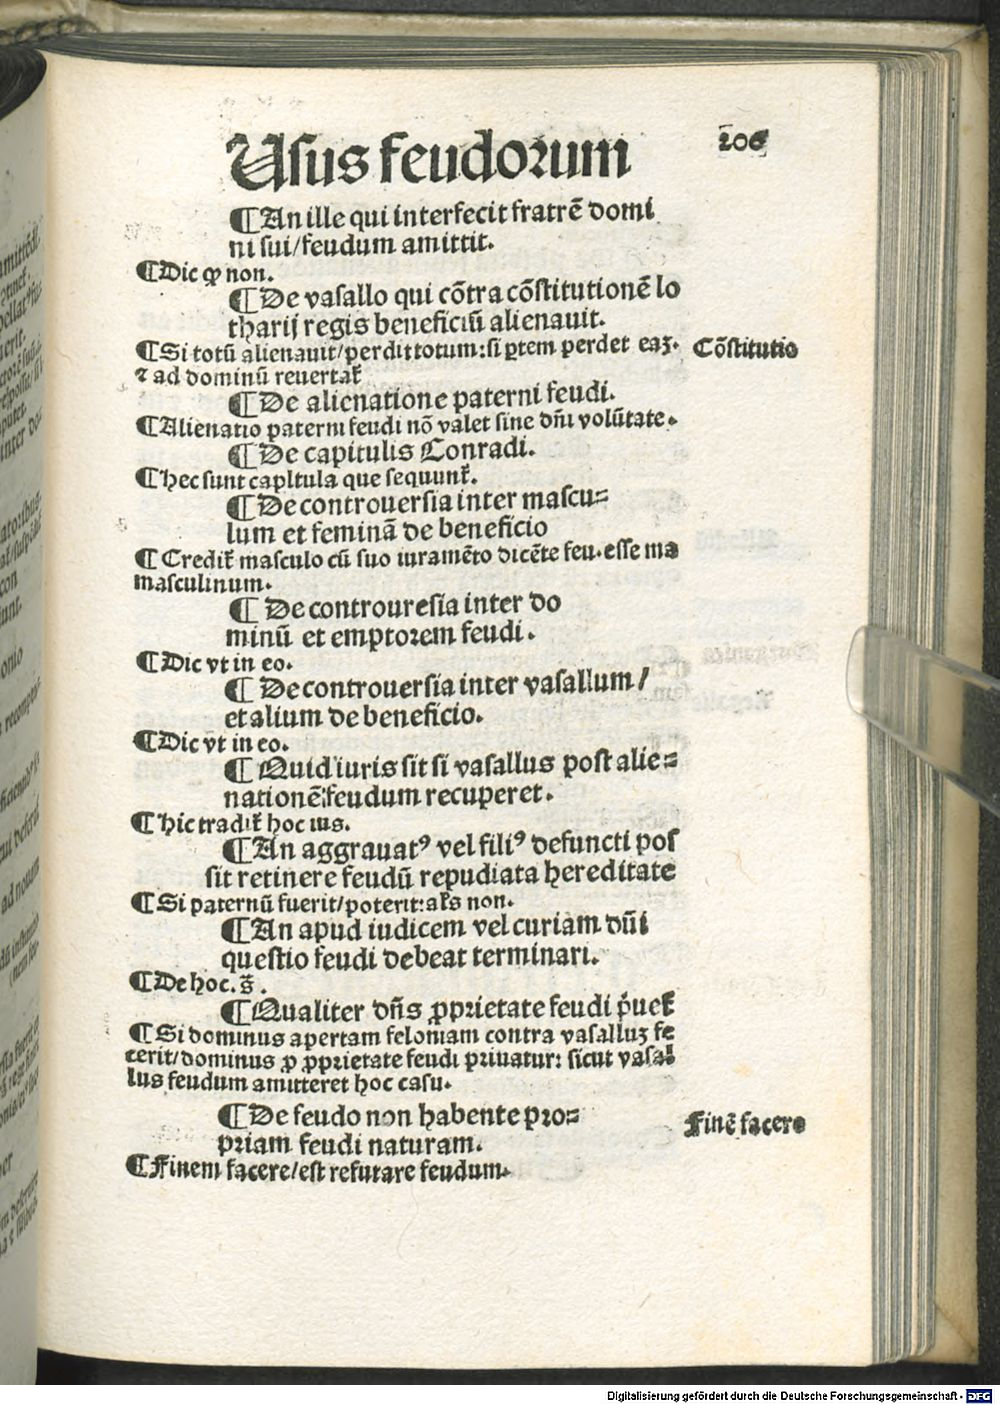 Usus feudorum
206
¶ An ille qui interfecit fratrē domi
ni sui/feudum amittit.
¶ Dic ꝙ non.
¶ De vasallo qui cōtra cōstitutionē lo
tharij regis beneficiū alienauit.
¶ Si totū alienauit/perdit totum:si ꝑtem perdet eaꝫ. Cōstitutio
⁊ ad dominū reuertat̃
¶ De alienatione paterni feudi.
¶ Alienatio paterni feudi nō valet sine dñi volūtate.
¶ De capitulis Conradi.
¶ Hec sunt capltula que sequunt̃.
¶ De controuersia inter mascu=
lum et feminā de beneficio
¶ Credit̃ masculo cū suo iuramēto dicēte feu.esse ma
masculinum.
¶ De controuresia inter do
minū et emptorem feudi.
¶ Dic vt in eo.
¶ De controuersia inter vasallum/
et alium de beneficio.
¶ Dic vt in eo.
¶ Quid iuris sit si vasallus post alie=
nationē:feudum recuperet.
¶ Hic tradit̃ hoc ius.
¶ An aggrauatꝰ vel filiꝰ defuncti pos
sit retinere feudū repudiata hereditate
¶ Si paternū fuerit/poterit:al̃s non.
¶ An apud iudicem vel curiam dñi
questio feudi debeat terminari.
¶ De hoc. s̄.
¶ Qualiter dñs ꝓprietate feudi p̃uet̃
¶ Si dominus apertam feloniam contra vasalluꝫ fe
cerit/dominus ꝓ ꝓprietate feudi priuatur: sicut vasal
lus feudum amitteret hoc casu.
¶ De feudo non habente pro=
priam feudi naturam.
Finē facere
¶ Finem facere/est refutare feudum.
Digitalisierung gefördert durch die Deutsche Forschungsgemeinschaft - DFG